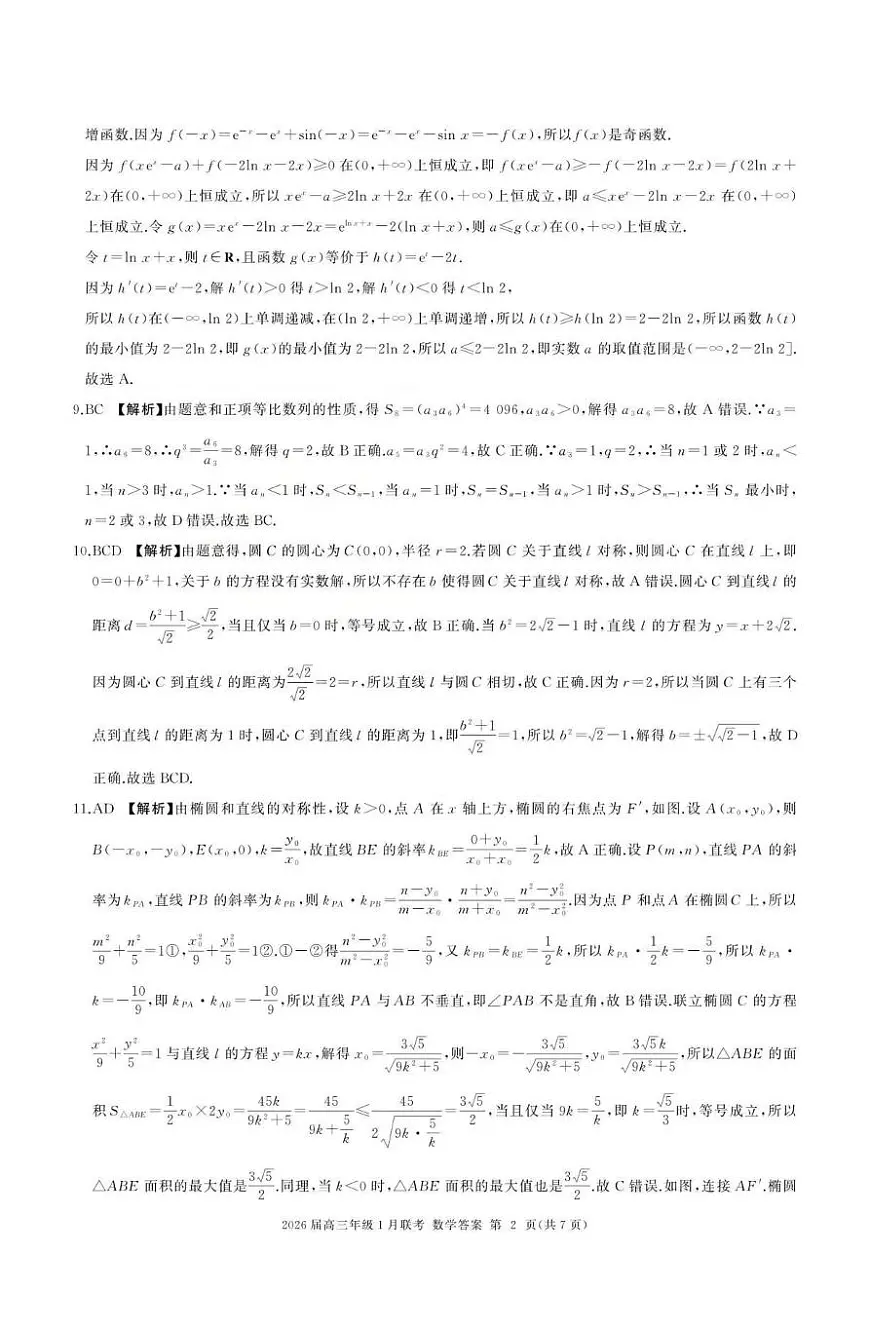 增函数.因为 f(-x)=e⁻ˣ-eˣ+sin(-x)=e⁻ˣ-eˣ-sin x=-f(x),所以f(x)是奇函数.
因为 f(xeˣ-a)+f(-2ln x-2x)≥0 在(0,+∞)上恒成立,即 f(xeˣ-a)≥-f(-2ln x-2x)=f(2ln x+
2x)在(0,+∞)上恒成立,所以 xeˣ-a≥2ln x+2x 在(0,+∞)上恒成立,即 a≤xeˣ-2ln x-2x 在(0,+∞)
上恒成立.令 g(x)=xeˣ-2ln x-2x=e^{ln x+x}-2(ln x+x),则 a≤g(x)在(0,+∞)上恒成立.
令 t=ln x+x,则 t∈R,且函数 g(x)等价于 h(t)=eᵗ-2t.
因为 h′(t)=eᵗ-2,解 h′(t)>0 得 t>ln 2,解 h′(t)<0 得 t<ln 2,
所以 h(t)在(-∞,ln 2)上单调递减,在(ln 2,+∞)上单调递增,所以 h(t)≥h(ln 2)=2-2ln 2,所以函数 h(t)
的最小值为 2-2ln 2,即 g(x)的最小值为 2-2ln 2,所以 a≤2-2ln 2,即实数 a 的取值范围是(-∞,2-2ln 2].
故选 A.
9.BC 【解析】由题意和正项等比数列的性质,得 S₈=(a₃a₆)⁴=4 096,a₃a₆>0,解得 a₃a₆=8,故 A 错误.∵a₃=
1,∴a₆=8,∴q³=a₆/a₃=8,解得 q=2,故 B 正确.a₅=a₃q²=4,故 C 正确.∵a₃=1,q=2,∴当 n=1 或 2 时,aₙ<
1,当 n>3 时,aₙ>1.∵当 aₙ<1 时,Sₙ<Sₙ₋₁,当 aₙ=1 时,Sₙ=Sₙ₋₁,当 aₙ>1 时,Sₙ>Sₙ₋₁,∴当 Sₙ 最小时,
n=2 或 3,故 D 错误.故选 BC.
10.BCD 【解析】由题意得,圆 C 的圆心为 C(0,0),半径 r=2.若圆 C 关于直线 l 对称,则圆心 C 在直线 l 上,即
0=0+b²+1,关于 b 的方程没有实数解,所以不存在 b 使得圆 C 关于直线 l 对称,故 A 错误.圆心 C 到直线 l 的
距离 d=(b²+1)/√2≥√2/2,当且仅当 b=0 时,等号成立,故 B 正确.当 b²=2√2-1 时,直线 l 的方程为 y=x+2√2.
因为圆心 C 到直线 l 的距离为2√2/√2=2=r,所以直线 l 与圆 C 相切,故 C 正确.因为 r=2,所以当圆 C 上有三个
点到直线 l 的距离为 1 时,圆心 C 到直线 l 的距离为 1,即(b²+1)/√2=1,所以 b²=√2-1,解得 b=±√(√2-1),故 D
正确.故选 BCD.
11.AD 【解析】由椭圆和直线的对称性,设 k>0,点 A 在 x 轴上方,椭圆的右焦点为 F′,如图.设 A(x₀,y₀),则
B(-x₀,-y₀),E(x₀,0),k=y₀/x₀,故直线 BE 的斜率 k_{BE}=(0+y₀)/(x₀+x₀)=1/2k,故 A 正确.设 P(m,n),直线 PA 的斜
率为 k_{PA},直线 PB 的斜率为 k_{PB},则 k_{PA}·k_{PB}=(n-y₀)/(m-x₀)·(n+y₀)/(m+x₀)=(n²-y₀²)/(m²-x₀²).因为点 P 和点 A 在椭圆 C 上,所以
m²/9+n²/5=1①,x₀²/9+y₀²/5=1②.①-②得(n²-y₀²)/(m²-x₀²)=-5/9,又 k_{PB}=k_{BE}=1/2k,所以 k_{PA}·1/2k=-5/9,所以 k_{PA}·
k=-10/9,即 k_{PA}·k_{AB}=-10/9,所以直线 PA 与 AB 不垂直,即∠PAB 不是直角,故 B 错误.联立椭圆 C 的方程
x²/9+y²/5=1 与直线 l 的方程 y=kx,解得 x₀=3√5/√(9k²+5),则-x₀=-3√5/√(9k²+5),y₀=3√5k/√(9k²+5),所以△ABE 的面
积 S_{△ABE}=1/2x₀×2y₀=45k/(9k²+5)=45/(9k+5/k)≤45/(2√(9k·5/k))=3√5/2,当且仅当 9k=5/k,即 k=√5/3时,等号成立,所以
△ABE 面积的最大值是3√5/2.同理,当 k<0 时,△ABE 面积的最大值也是3√5/2.故 C 错误.如图,连接 AF′.椭圆
2026届高三年级1月联考 数学答案 第 2 页(共7页)